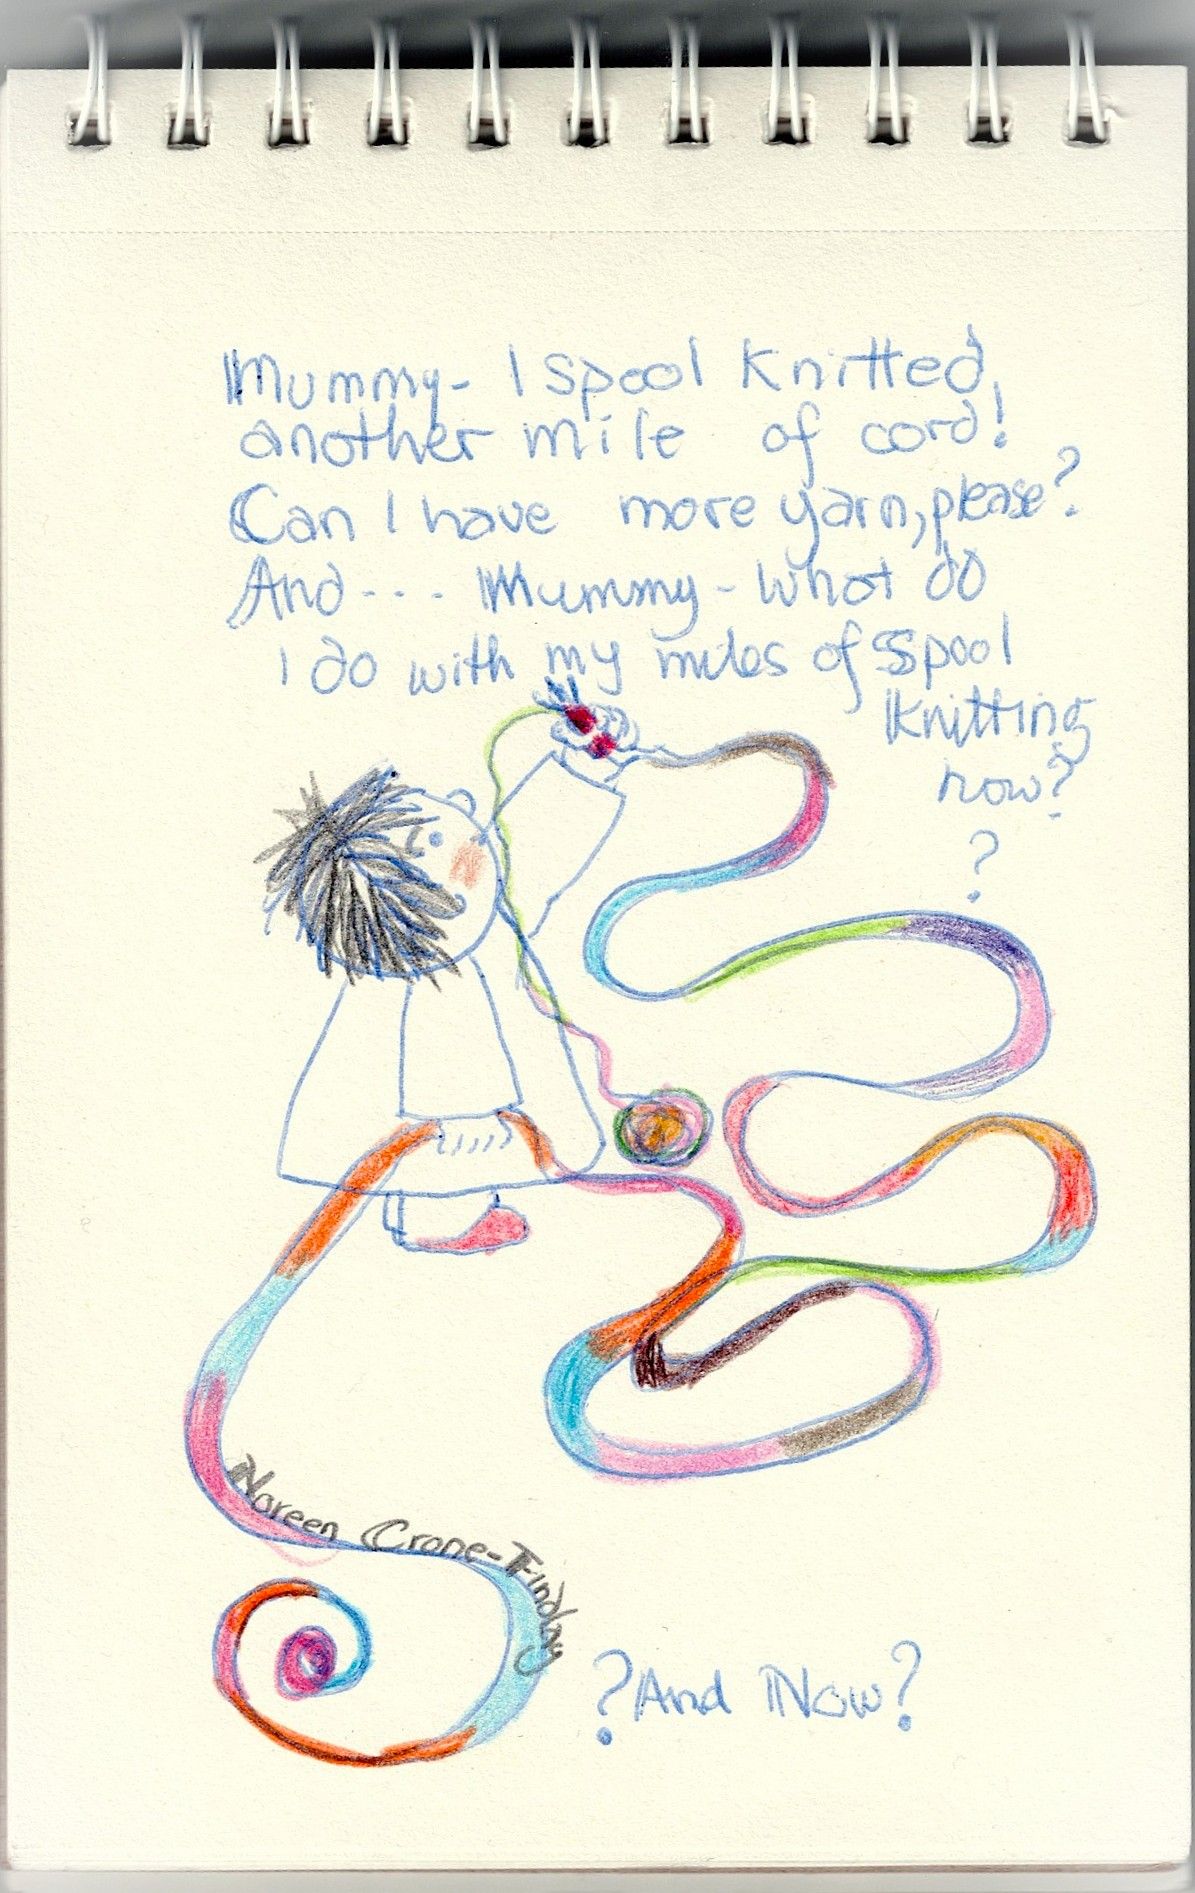 Mummy- I spool knitted
another mile of cord!
Can I have more yarn, please?
And--- Mummy- what do
I do with my miles of spool
knitting
now?
?
Noreen Crone-Findlay
? And Now?